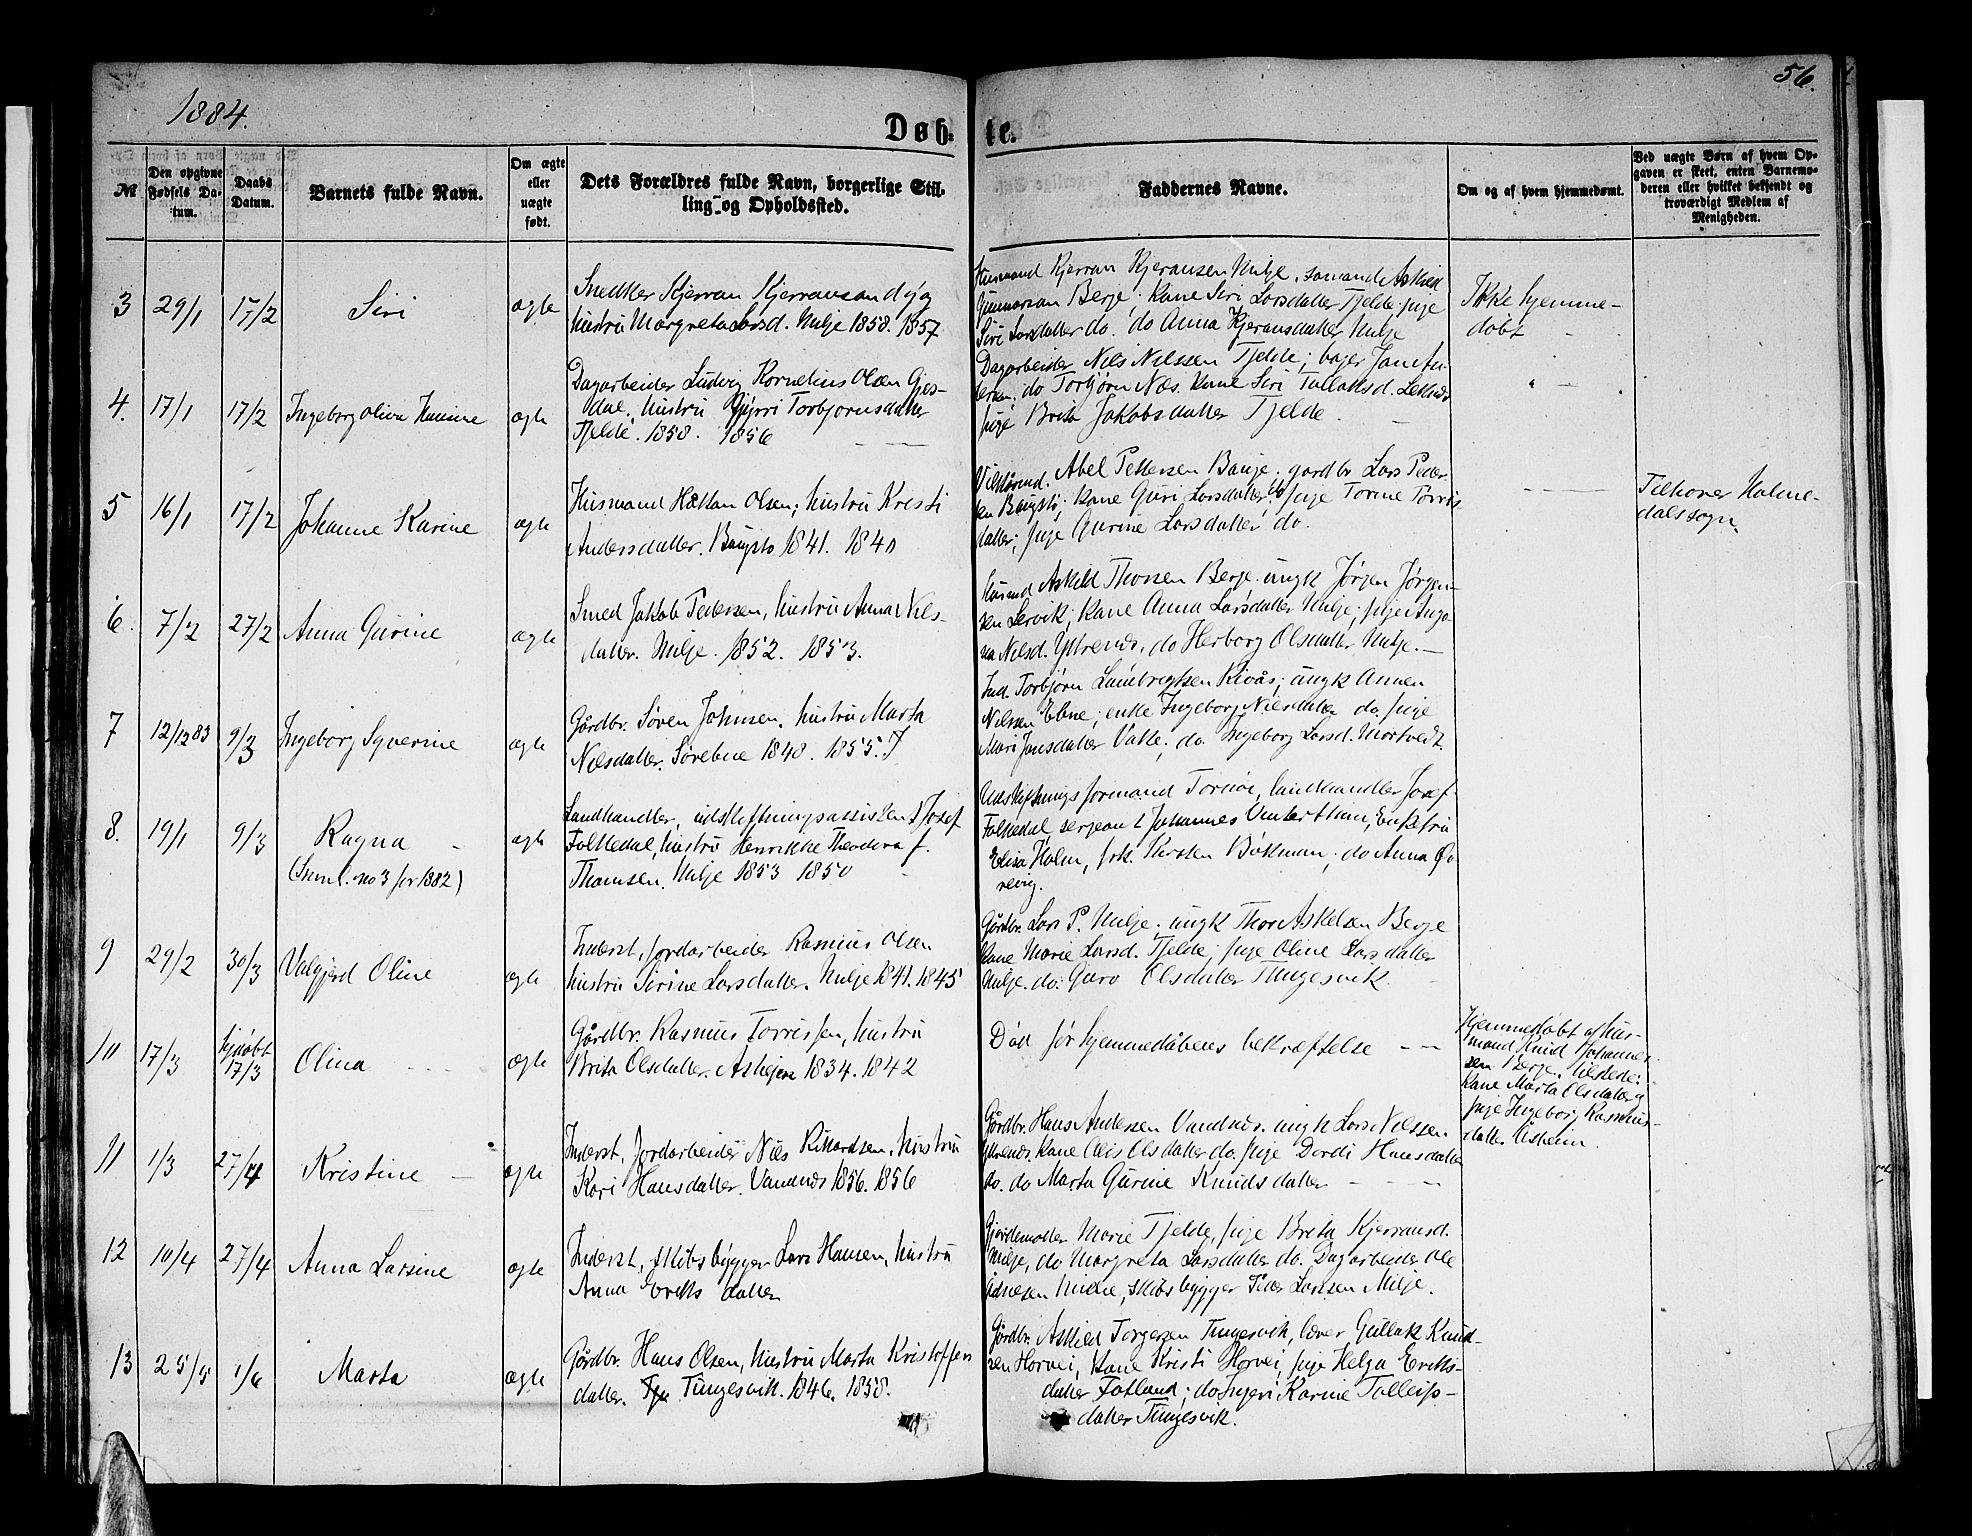 1884.
56.
Døb-
te.
№
Den opgivne Fødsels Da-
tum.
Daabs Datum.
Barnets fulde Navn.
Om ægte eller uægte født.
Dets Forældres fulde Navn, borgerlige Stil-
ling og Opholdssted.
Faddernes Navne.
Om og af hvem hjemmedøbt.
Ved uægte Børn af hvem Op-
gaven er skeet, enten Barnemo-
deren eller hvilket bekjendt og
troværdigt Medlem af
Menigheden.
3 29/1 17/2 Siri ægte
Snedker Kjerran Kjerransen og
hustru Margreta Larsd. Milje 1858. 1857
Husmand Kjerran Kjeransen Milje, sømand Askild
Gunnarsen Berje; kone Siri Larsdatter Tjelde; pige
Siri Larsdatter do. do Anna Kjeransdatter Milje
Ikke hjemme-
døbt
4. 17/1 17/2 Ingeborg Oliva ægte
Dagarbeider Ludvig Kornelius Olsen Gjes-
dal, hustru Torbjørnsdatter
Tjelde. 1858. 1856
Dagarbeider Nils Nilssen Tjelde; Jan An-
dersen. do Torbjørn Næs. kone Siri
pige Brita Jakobsdatter Tjelde.
5 16/1 17/2 Johanne Karine ægte
Husmand Haktan Olsen; hustru Kristi
Andersdatter. Baugstø 1841. 1840
Abel Pettersen Bauge. gardbr Lars Peder-
sen Baugstø; kone Guri Larsdatter do; pige Torine Torris-
datter; pige Gurine Larsdatter, do.
Tilhører Holme-
dals sogn
6. 7/2 27/2 Anna Gurine ægte
Smed Jakob Pedersen, hustru Anna Nils-
datter. Milje. 1852. 1853.
Askild Thorsen Berje. ungk Jørgen Jørgen-
sen Lervik; kone Anna Larsdatter Milje; pige Anga-
na Nilsd. Ytrenæs. do Herborg Olsdatter Milje.
7 12/12 83 9/3 Ingeborg Syverine ægte
Gårdbr. Søren Johnsen, hustru Marta
Nilsdatter. Sørebne 1848. 1855.
Ind. Torbjørn Lambregtsen Kivås; ungk Annen
Nilsen Ebne; enke Ingeborg Nilsdatter do. pige
Mari Jonsdatter Valle; do. Ingeborg Larsd. Mortvedt.
8. 19/1 9/3 Ragna ægte
(Smnl. no 3 for 1882)
Landhandler, udskiftningsassistent Josef
Folkedal, hustru Henrikke Theodora f.
Thomsen. Milje 1853 1850
Udskiftningsformand landhandler Josef
Folkedal, sergeant Johannes Vinterthun, Enkefru
Elisa Holm, frk. Kirsten Bøkman; do Anna Øv-
revig.
9 29/2 30/3 Valgjerd Oline ægte
Inderst, jordarbeider Rasmus Olsen
hustru Sirine Larsdatter. Milje 1841. 1845
Gårdbr. Lars P. Milje; ungk Thor Askelsen Berge
kone Marie Larsd. Tjelde, pige Oline Larsdatter
Milje. do. Guro Olsdatter Tungesvik.
10 17/3 hjdøbt
17/3 Olina ægte
Gårdbr. Rasmus Torrissen, hustru
Brita Olsdatter. Askjem 1834. 1842
Død før hjemmedåbens bekræftelse
Hjemmedøbt af hus-
mand Knud Johannes-
sen Berge. tilstede:
Kone Marta Olsdatter og
pige Ingeborg Rasmus-
datter
11 1/3 27/4 Kristine ægte
Inderst, Jordarbeider Nils Rikardsen, hustru
Kari Hansdatter. Vandnæs 1856. 1856
Gårdbr. Hans Andersen Vandnæs. ungk Lars Nilssen
Ytrenæs. kone Olsdatter do. pige Dordi Hansdatter
do. do Marta Gurine Knudsdatter
12 10/4 27/4 Anna Larsine ægte
Inderst, skibsbygger Lars Hansen, hustru
Anna Eriksdatter
Gjordemoder Marie Tjelde, pige Brita Kjerransd.
Milje, do Margreta Larsdatter do. Dagarbeider Ole
Ådnesen Milje, skibsbygger Peder Larssen Milje.
13 25/5 1/6 Marta ægte
Gårdbr. Hans Olsen, hustru Marta Kristoffers
datter. Tungesvik. 1846. 1858.
Gårdbr. Askild Torgersen Tungesvik, lærer Gullak Knud-
sen Horvei, kone Kristi Horvei, pige Helga Eriks-
datter Fatland; do Ingeri Karine Tolleifs-
datter Tungesvik.